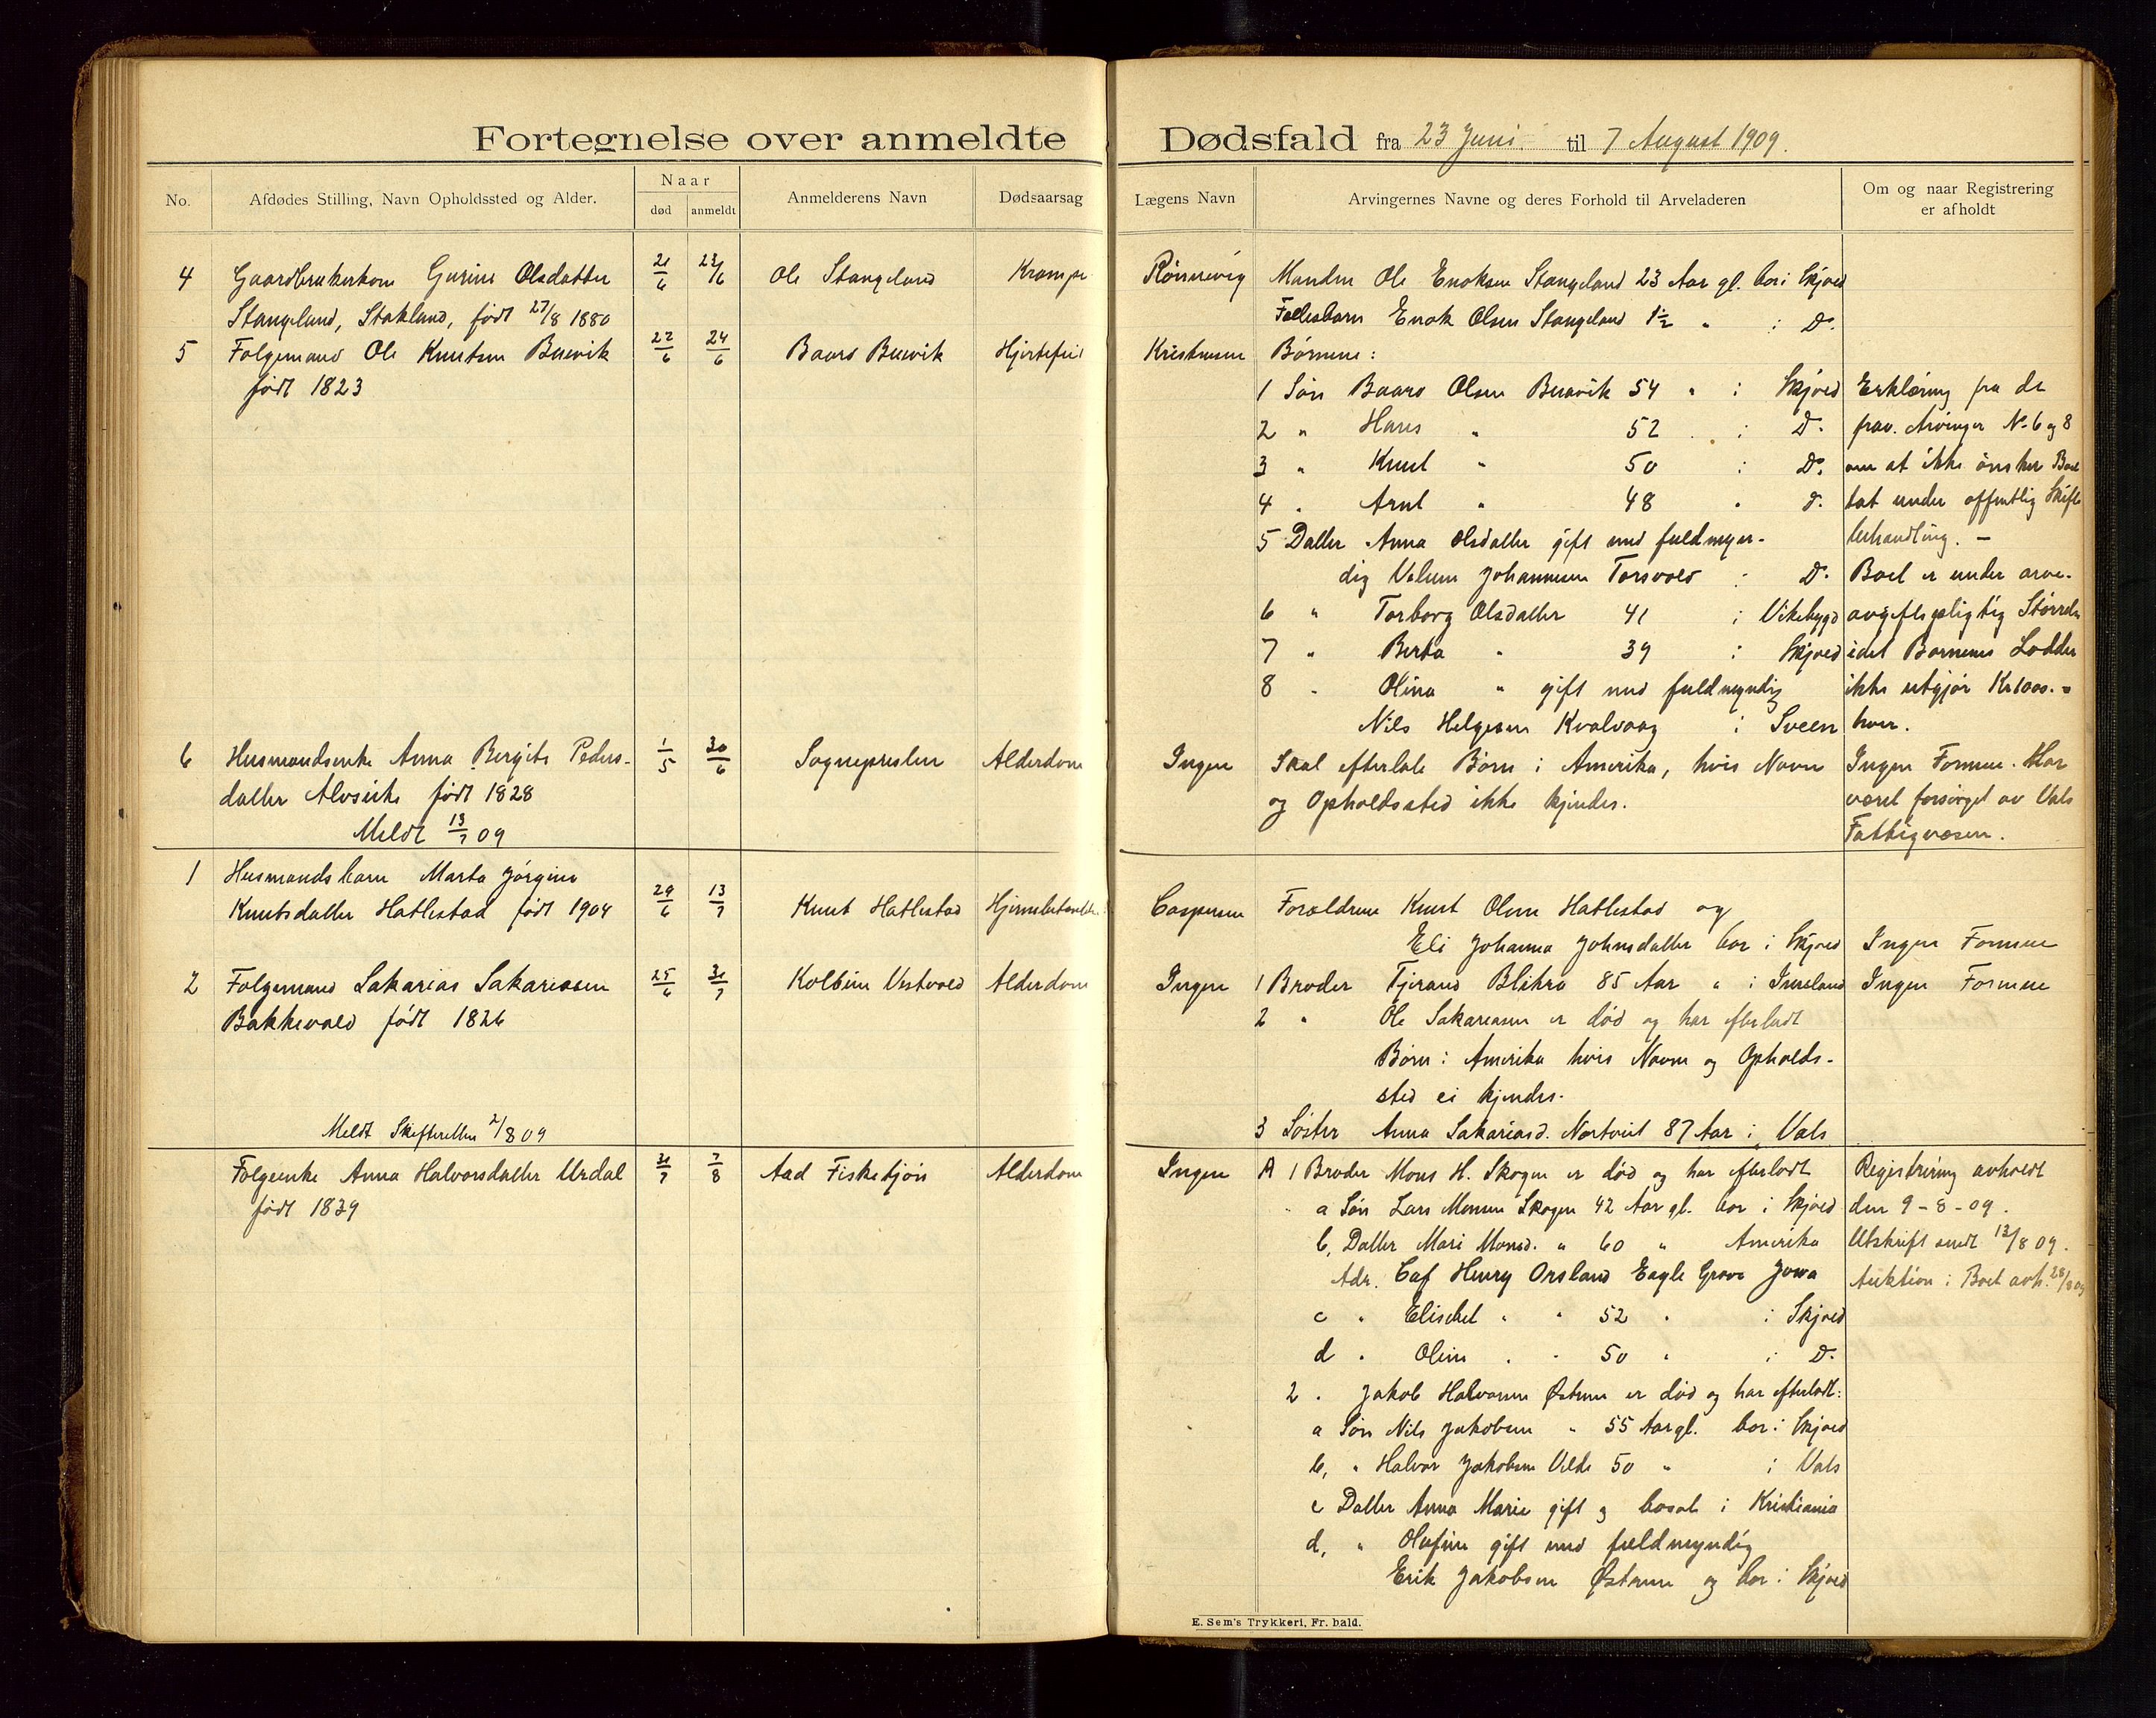 Fortegnelse over anmeldte
No.
Afdødes Stilling, Navn Opholdssted og Alder.
Naar
død
anmeldt
Anmelderens Navn
Dødsaarsag
4 Gaardbrukerkone Gurine Olsdatter 21/6 23/6 Ole Stangeland Krampe
Stangeland, Stakland, født 27/8 1880
5 Folgemand Ole Knutsen Buevik 22/6 24/6 Baard Buevik Hjertefeil
født 1823
6 Husmandsenke Anna Bergite Peders- 1/5 30/6 Sognepresten Alderdom
datter Alvseike født 1828
Meldt 13/7 09
1 Husmandsbarn Marta Jørgine
Knutsdatter Hatlestad født 1904 29/6 13/7 Knut Hatlestad
2 Folgemand Sakarias Sakariassen 25/6 31/7 Kolbein Vestvold Alderdom
Bakkevold født 1826
Meldt Skifteretten 2/8 09
Folgeenke Anna Halvorsdatter Urdal 31/7 7/8 Aad Fisketjøn Alderdom
født 1839
Dødsfald fra 23 Juni til 7 August 1909.
Lægens Navn
Arvingernes Navne og deres Forhold til Arveladeren
Om og naar Registrering
er afholdt
Rönnevig Manden Ole Enoksen Stangeland 23 Aar gl. bor i Skjold
Fællesbarn Enok Olsen Stangeland 1½ " i Do.
Kristensen Børnene:
1 Søn Baard Olsen Buevik 54 " i Skjold Erklæring fra de
2 " Hans " 52 i Do. frav. Arvinger No 6 og 8
3 " Knut " 50 i Do. om at ikke ønsker Boet
4 " Arnt " 48 " Do. tat under offentlig Skifte
5 Datter Anna Olsdatter gift med fuldmyn- behandling. -
dig Johannesen Torsvold i Do. Boet er under arve-
6 " Torborg Olsdatter 41 i Vikebygd avgiftspligtig Størrelse
7 " Berta " 39 i Skjold idet Børnenes Lodder
8 " Olina " gift med fuldmyndig ikke utgjør Kr 1000.-
Nils Helgesen Kvalvaag i Sveen hver.
Ingen Skal efterlate Børn i Amerika, hvis Navn Ingen Formue. Har
og Opholdssted ikke kjendes. været forsørget av Vats
Fattigvæsen.
Caspersen Forældrene Knut Olsen Hatlestad og
Eli Johanna Johnsdatter bor i Skjold Ingen Formue
Ingen 1 Broder Tjerand Blikra 85 Aar " i Imesland Ingen Formue
2 " Ole Sakariasen er død og har efterladt
Børn i Amerika hvis Navne og Opholds-
sted ei kjendes.
3 Søster Anna Sakariasd. Nortveit 87 Aar i Vats
Ingen A 1 Broder Mons H. Skogen er død og har efterladt Registrering avholdt
a Søn Lars Monsen Skogen 42 Aar gl. bor i Skjold den 9-8-09.
b, Datter Mari Monsd. " 60 " Amerika Utskrift sendt 12/8 09.
Adr. Caf Henry Orsland Eagle Grove Jowa Auktion i Boet avh. 28/8 09
c " Elisebet " " 52 " i Skjold
d " Oline " " 50 " i Do.
2 " Jakob Halvorsen Østenes er død og har efterladt:
a Søn Nils Jakobsen " 55 Aar gl. bor i Skjold
b, " Halvor Jakobsen Velde 50 " i Vats
c Datter Anna Marie gift og bosat i Kristiania
d, " Olufine gift med fuldmyndig
Erik Jakobsen og bor i Skjold
E. Sem's Trykkeri, Fr.hald.